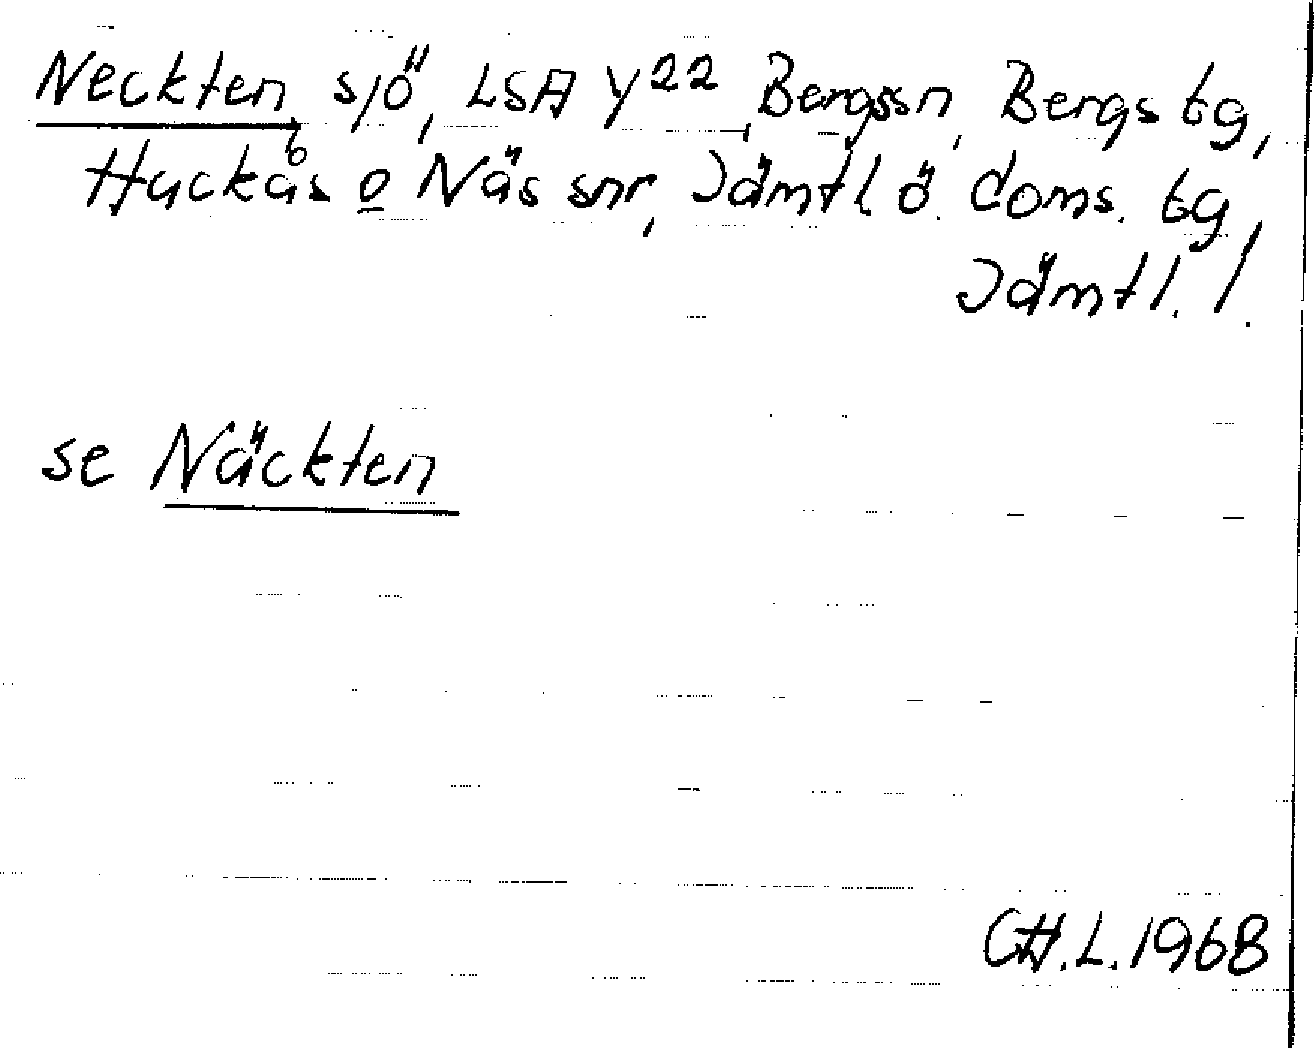 Neckten sjö, LSA Y22, Bergs sn, Bergs tg,
Hackås o Näs snr, Jämtl ö. doms. tg,
Jämtl. l.
se Näckten
CH.L. 1968